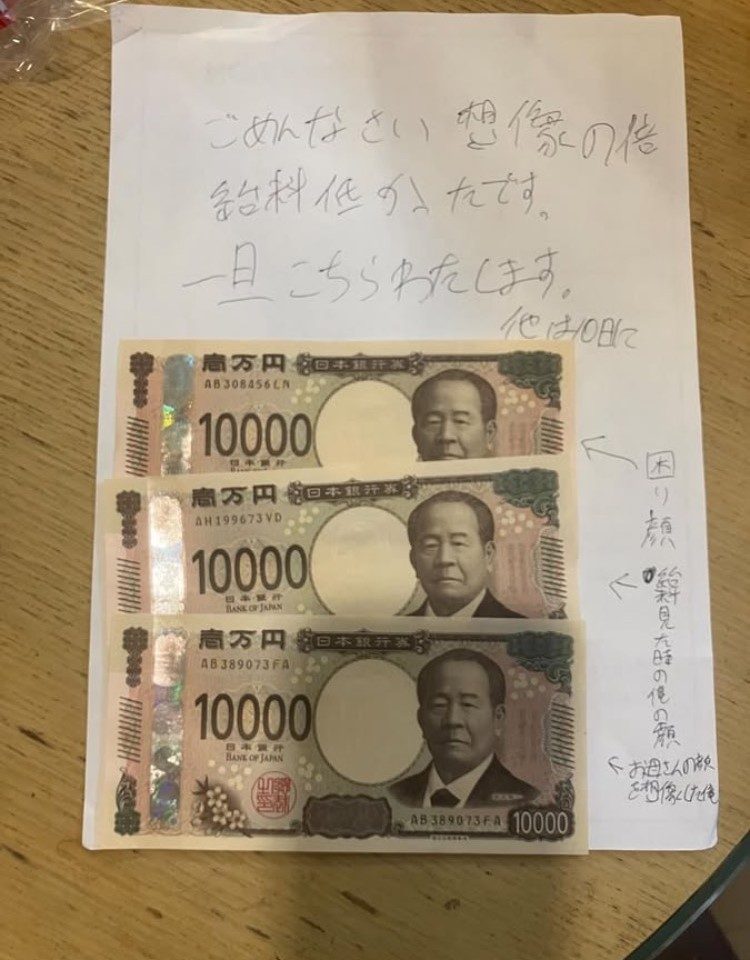 ごめんなさい 想像の倍
給料低かったです。
一旦こちらわたします。
他は10日に
壱万円
日本銀行券
AB308456LN
10000
日本銀行
BANK OF JAPAN
困り顔
壱万円
日本銀行券
AH199673VD
10000
日本銀行
BANK OF JAPAN
給料見た時の俺の顔
壱万円
日本銀行券
AB389073FA
10000
日本銀行
BANK OF JAPAN
AB389073FA
10000
お母さんの顔
を想像した俺